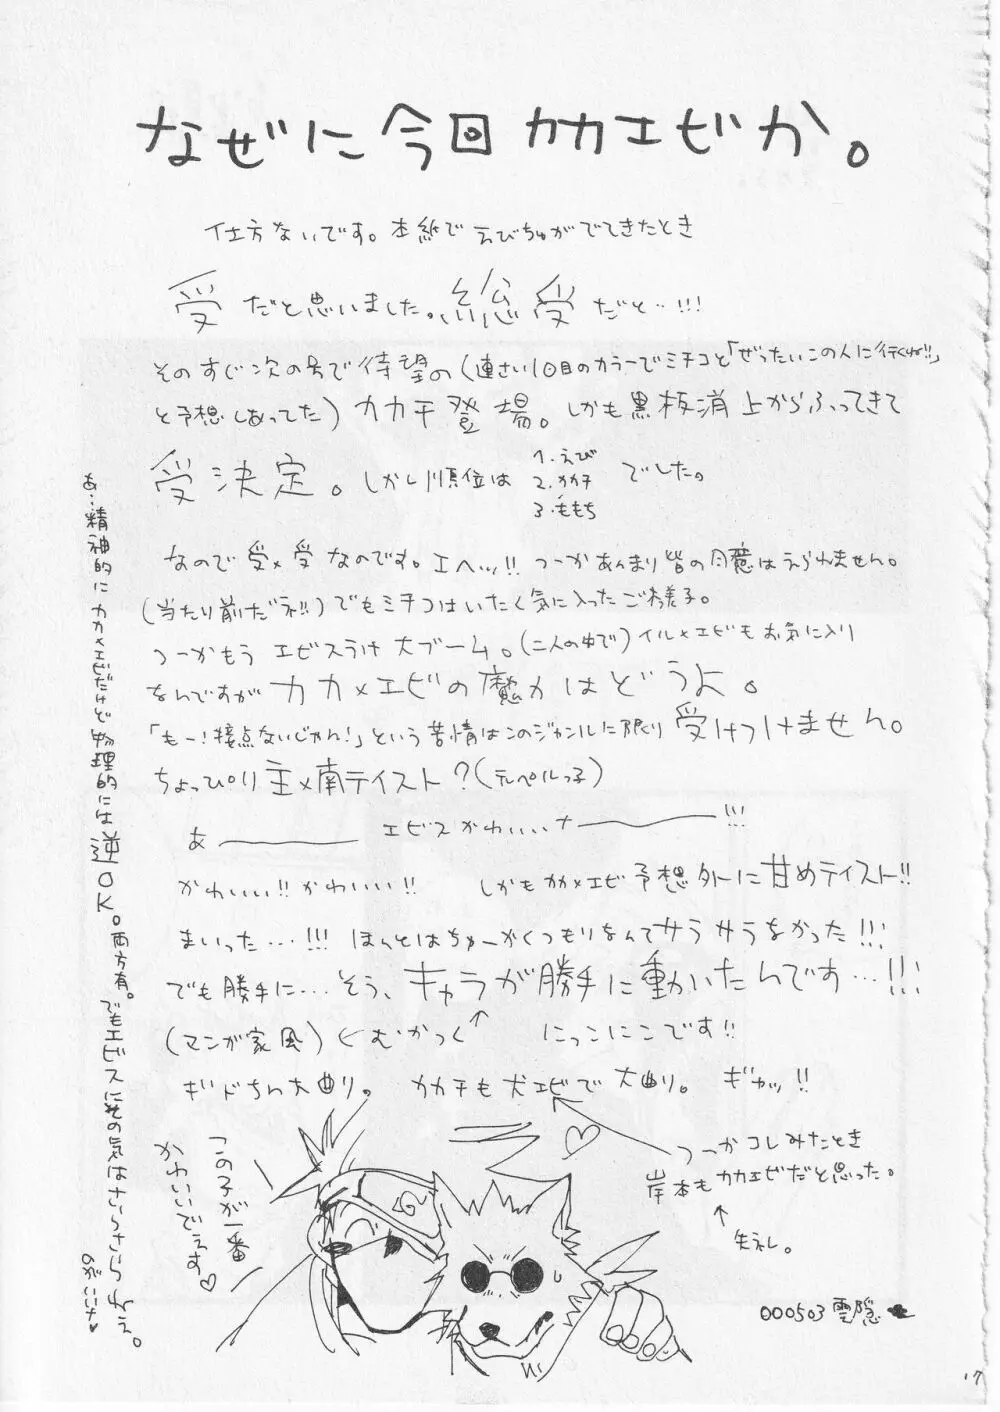 なぜに今回カカエビか。
仕方ないです。本紙でえびちゅがでてきたとき
受だと思いました。総受だと…!!!
そのすぐ次の号で待望の(連さい1回目のカラーでミチコと「ぜったいこの人に行くね!!」
と予想しあってた)カカチ登場。しかも黒板消上からふってきて
受決定。しかし順位は
1.えび
2.カカチ
3.ももち
でした。
なので受×受なのです。エヘッ!!つーかあんまり皆の同意はえられません。
(当たり前だヨ!!)でもミチコはいたく気に入ったご様子。
つーかもうエビスうけ大ブーム。(二人の中で)イル×エビもお気に入り
なんですがカカ×エビの魔力はどうよ。
「もー!接点ないじゃん!」という苦情はこのジャンルに限り受けつけません。
ちょっぴり主×南テイスト?(デルペルっ子)
あ――― エビスかわいいナ―――!!!
かわいい!!かわいい!! しかもカカ×エビ予想外に甘めテイスト!!
まいった…!!! ほんとはちゅーがくつもりなんてサラサラなかった!!!
でも勝手に…そう、キャラが勝手に動いたんです…!!!
(マンガ家風)←むかつく↑ にっこにこです!!
ギドちん大曲り。 カカチも犬エビで大曲り。 ギャッ!!
つーかコレみたとき
岸本もカカエビだと思った。
↑
失礼。
この子が一番
かわいいでぇす♡
000503 雲隠
あ…精神的にカカ×エビだけど物理的には逆OK。両方有。でもエビスにその気はさらさらねぇ。
のがいいナ♥
17